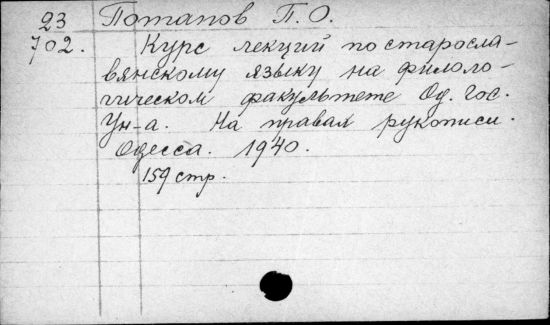 23 Потапов П. О.
702. Курс лекций по старосла-
вянскому языку на филоло-
гическом факультете Од. Гос.
Ун-а. На правах рукописи.
Одесса. 1940.
159 стр.